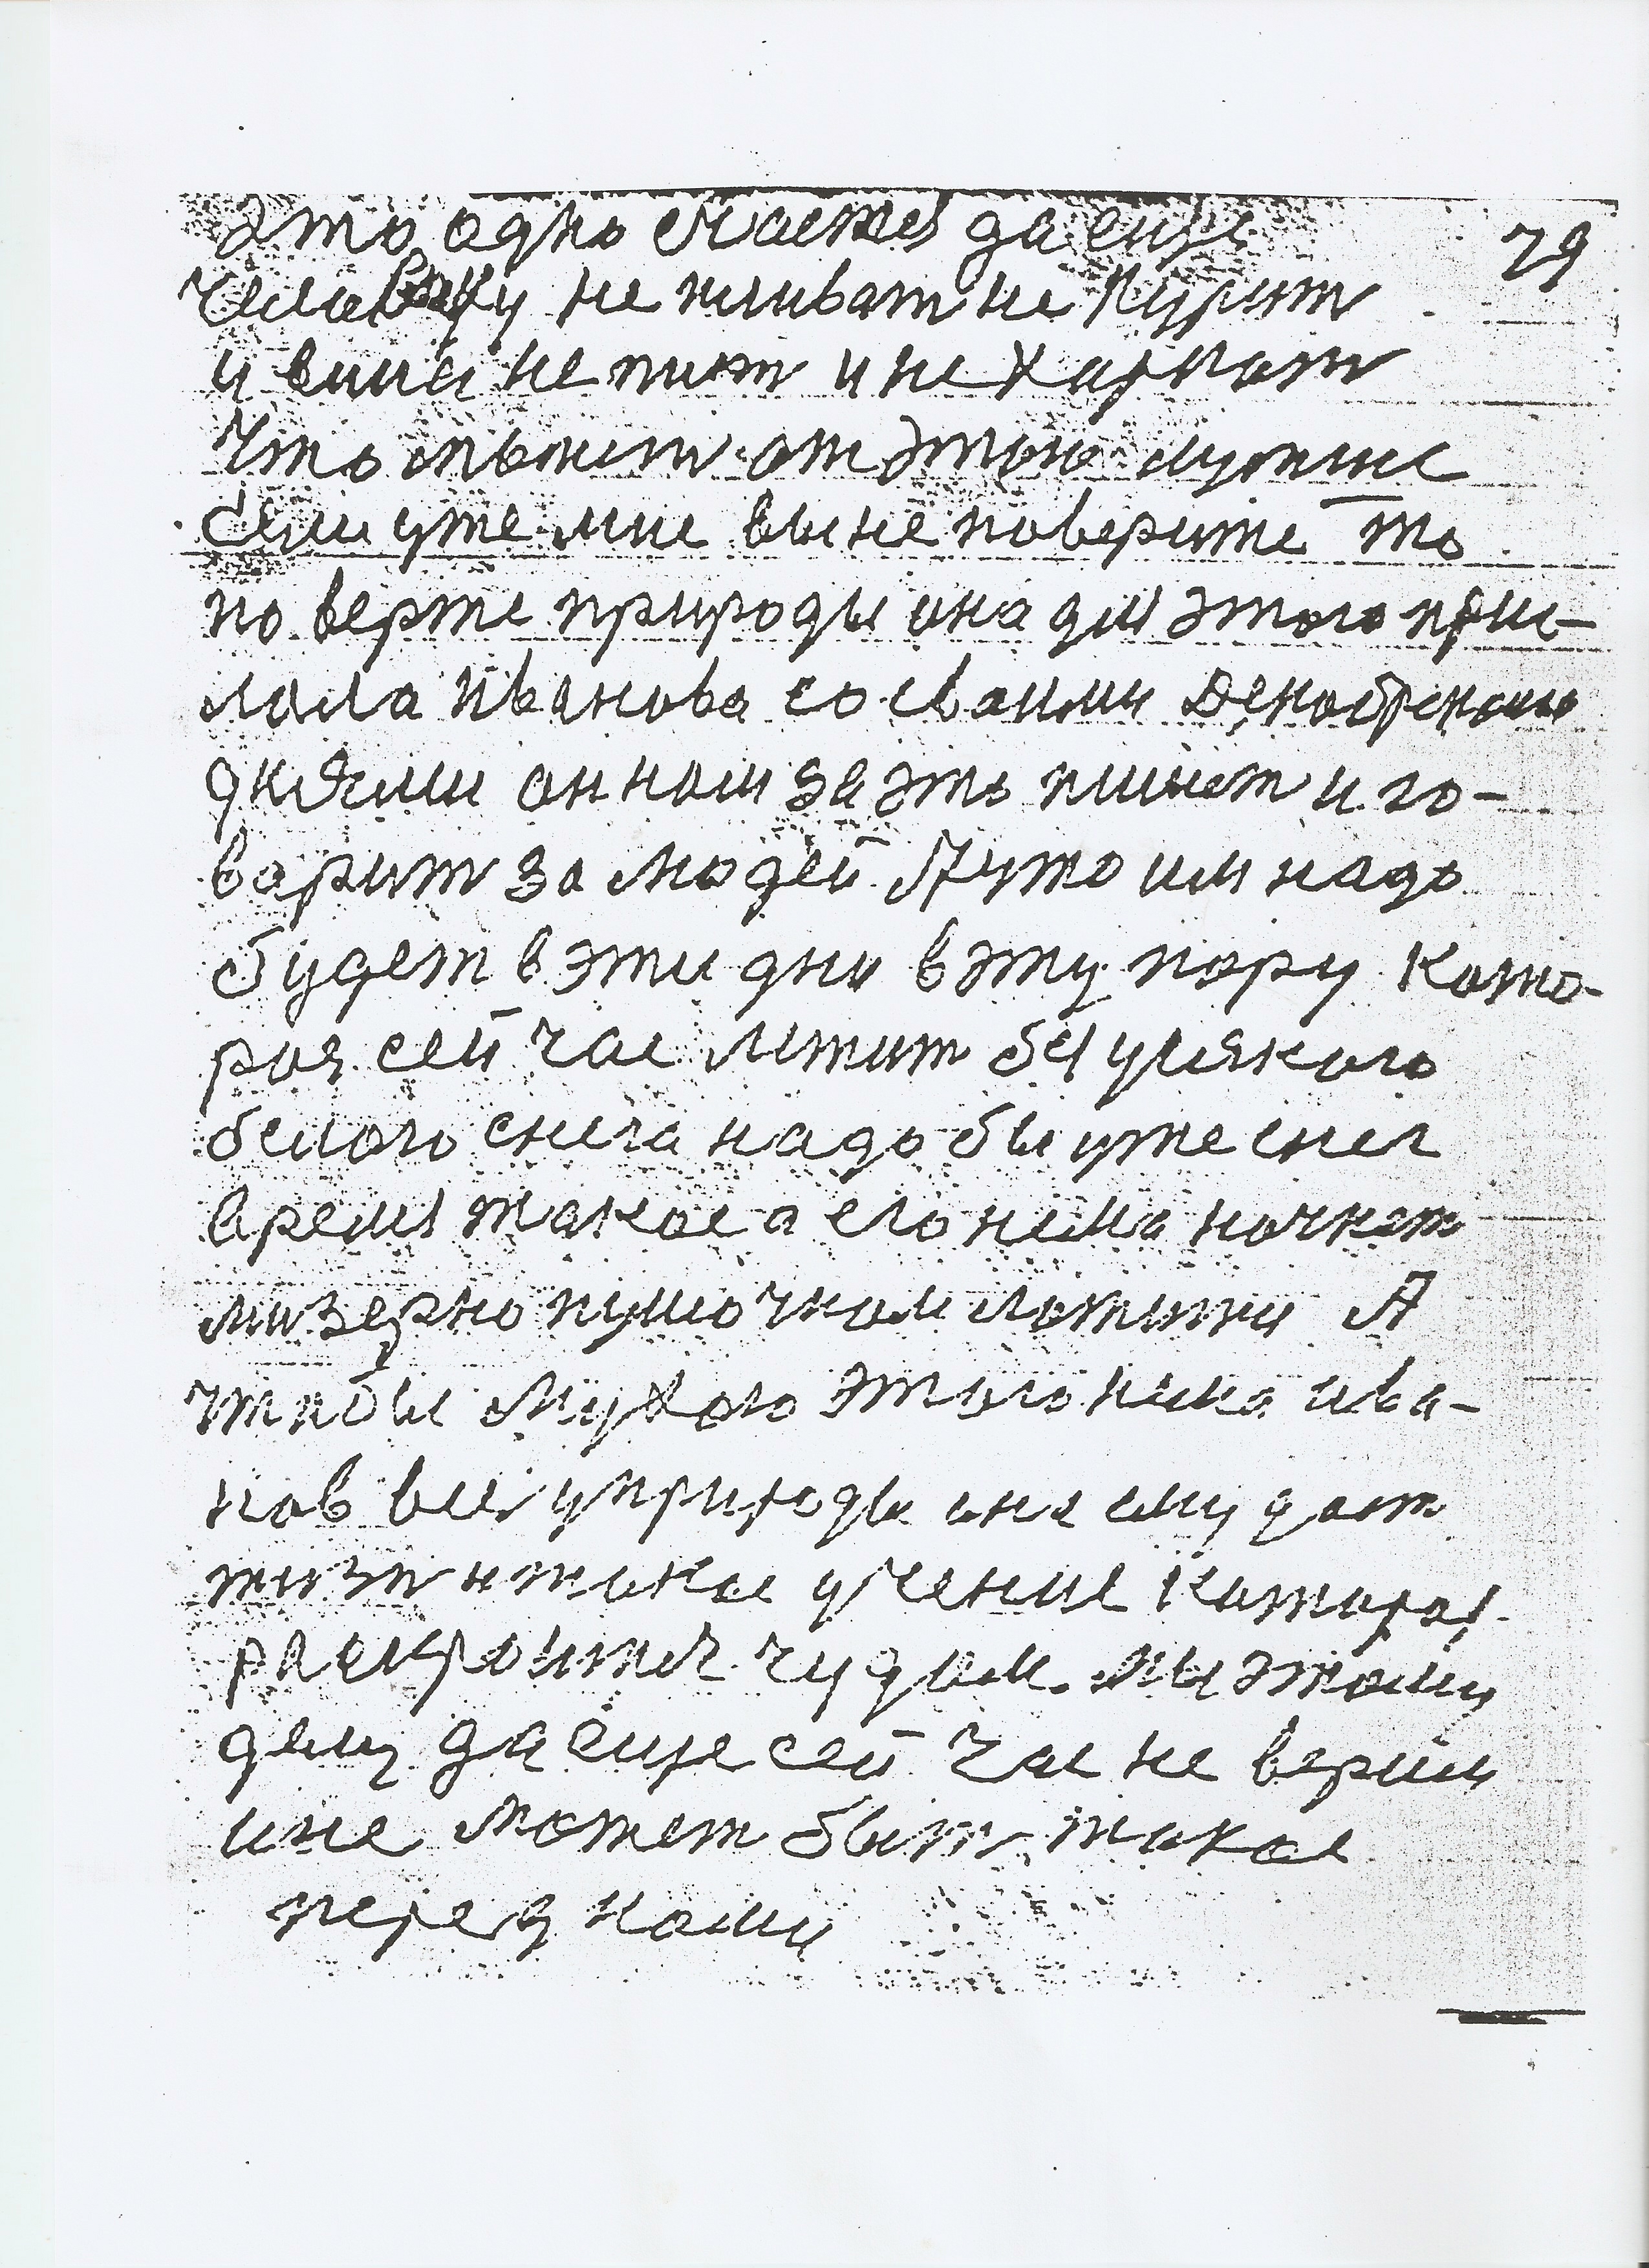 это одно счастея да еще 79
человеку не пливат не курит
и вина не пит и не харкат
что может от этого лучше
если уже мне вы не поверите то
по верте природы она для этого при-
лала иванова со своими Декабрскими
днями он нам за это пишет и го-
ворит за людей Луто им надо
будет в эти дни в эту пору кото-
рая сей час литит без усякого
белого снега надо бы уже снег
время такое а его нима начнет
мизерно пушочком лотити А
чтобы плухого этого нина ива-
нов все у природы она ему дает
жизн и такое учение которое
раскроится чудом. мы этому
делу да еще сей час не верим
и не может быть такое
перед нами